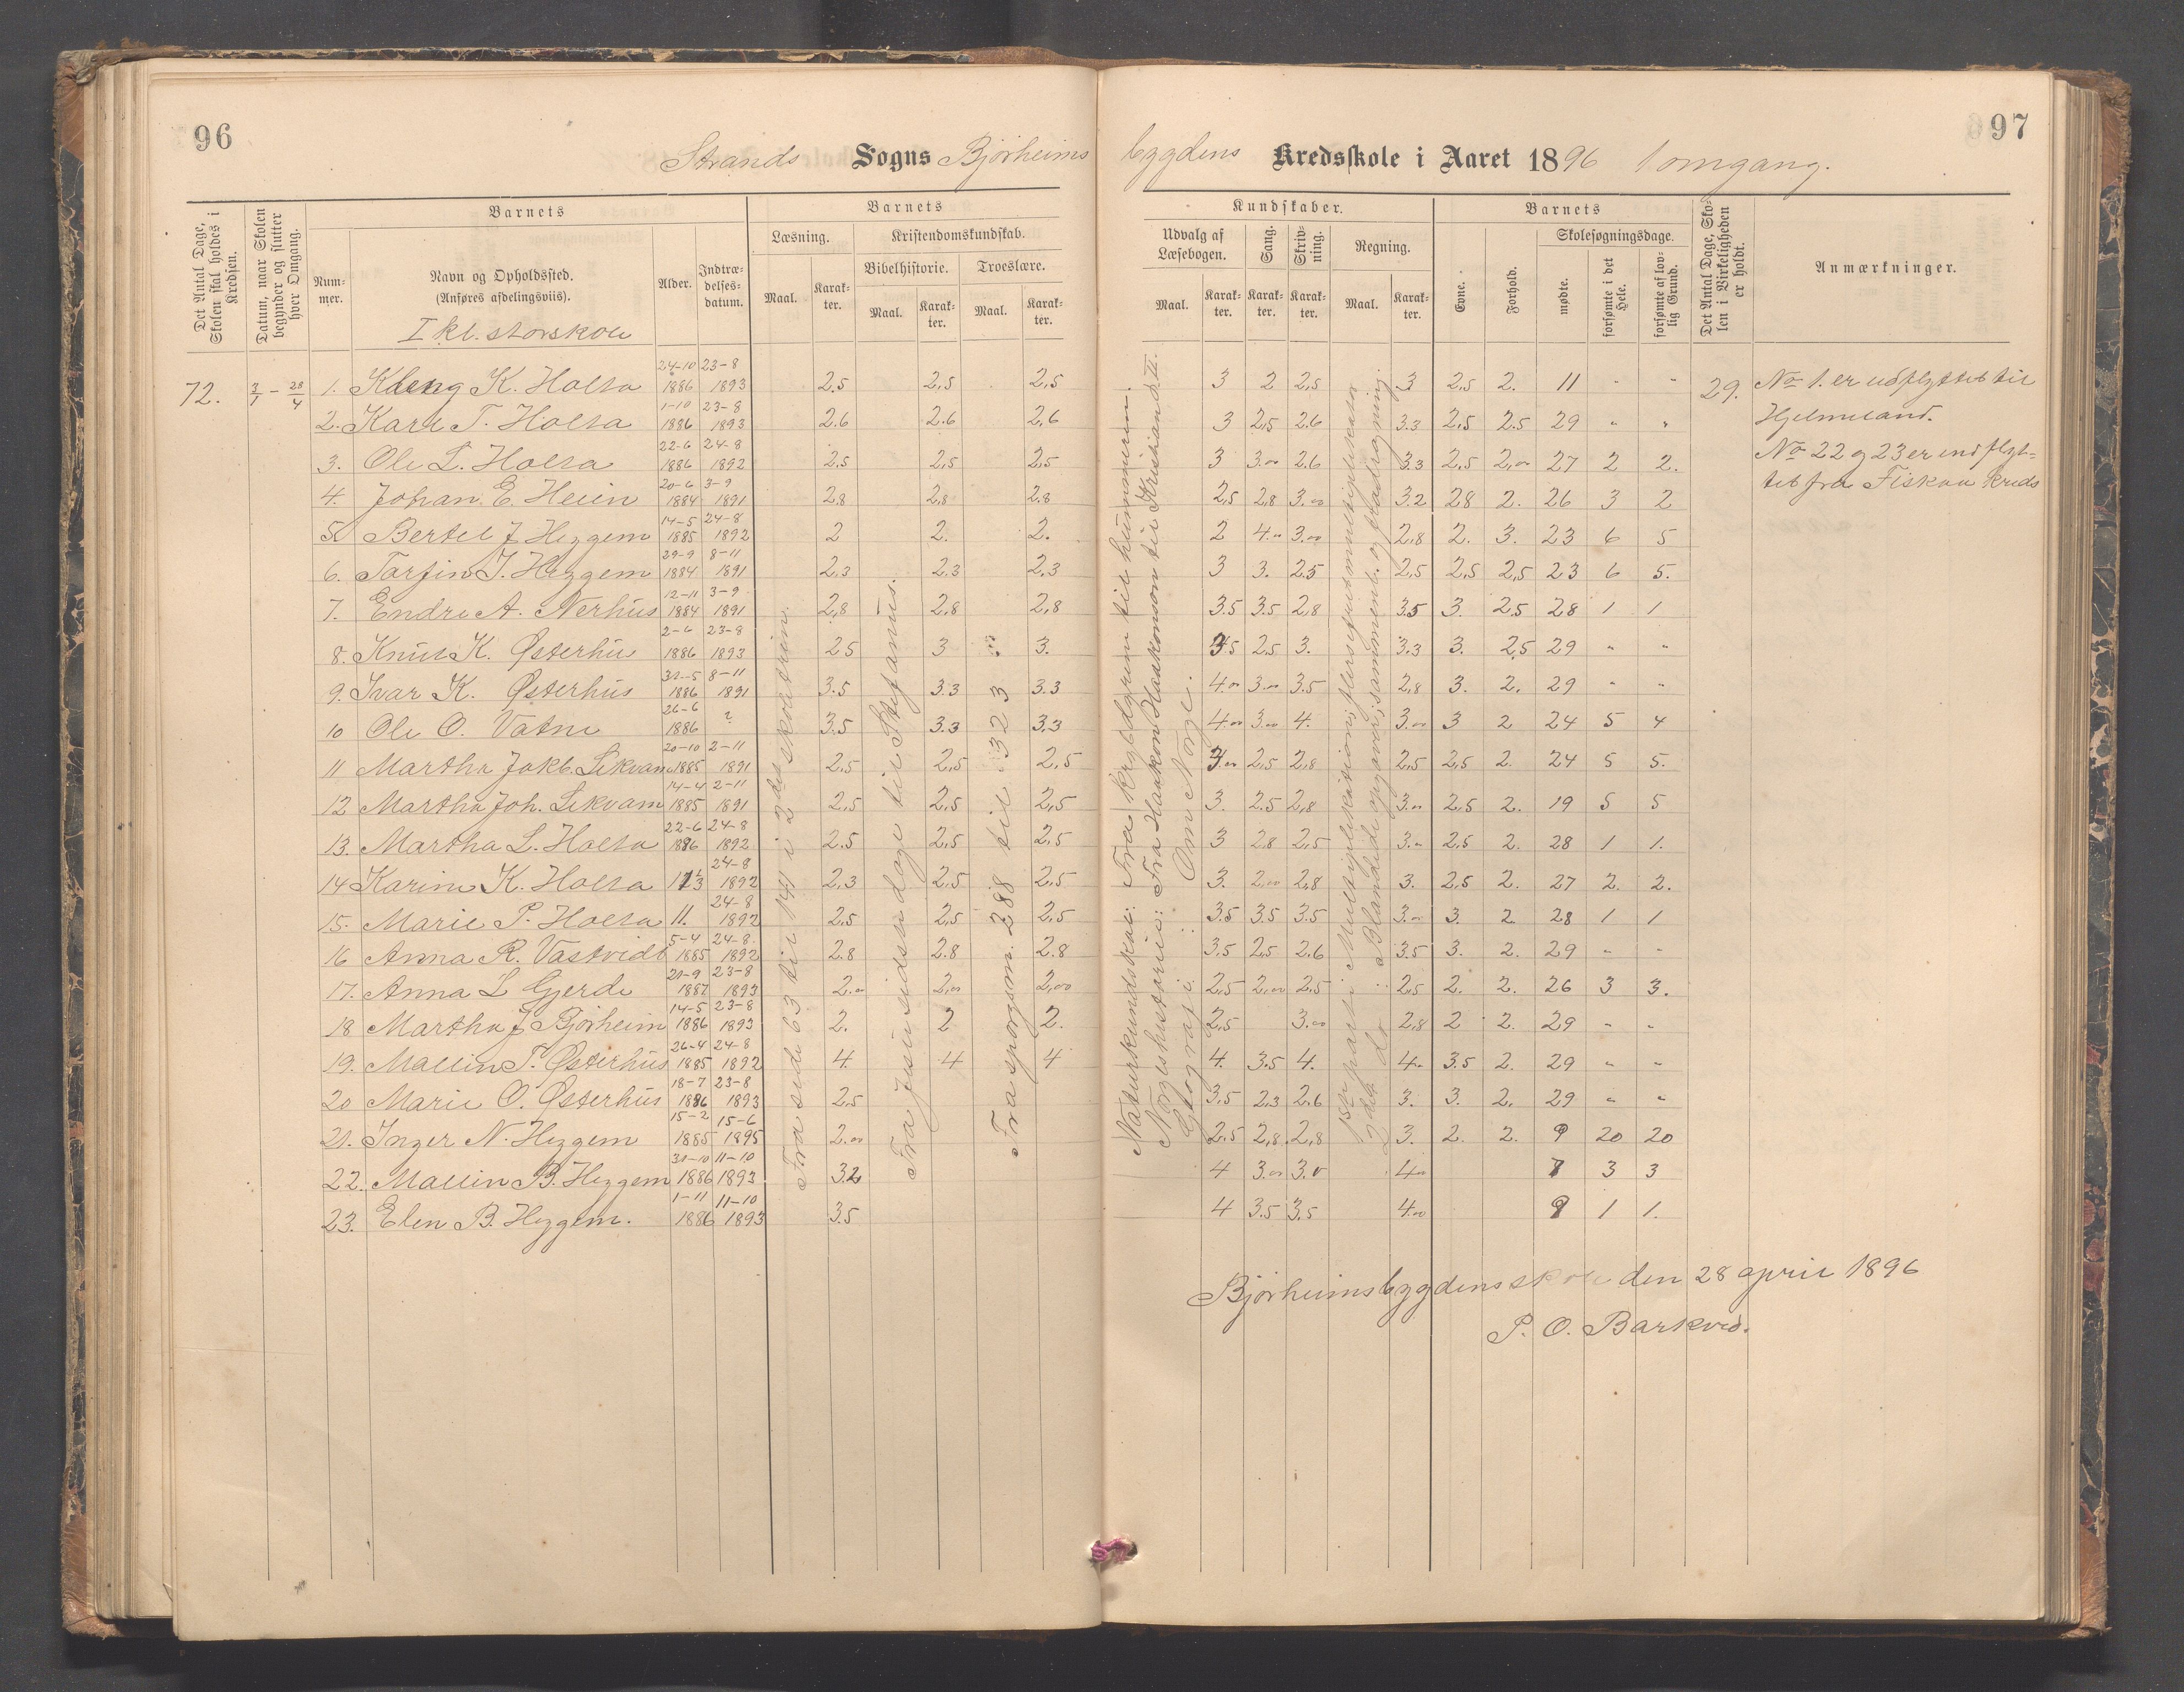 96
Strands Sogns Bjørheims
Det Antal Dage, Skolen skal holdes i Kredsen.
Datum, naar Skolen begynder og slutter hver Omgang.
Barnets
Barnets
Læsning.
Kristendomskundskab.
Bibelhistorie.
Troeslære.
Num-mer.
Navn og Opholdssted.
(Anføres afdelingsviis).
Alder.
Indtræ-delses-datum.
Maal.
Karak-ter.
Maal.
Karak-ter.
Maal.
Karak-ter.
I kl. storskole
72. 3/1 – 28/4
1. K. Holta 24-10 1886 23-8 1893 2.5 2,5 2,5
2. Karl T. Holta 1-10 1886 23-8 1893 2.6 2.6 2,6
3. Ole L. Holta 22-6 1886 24-8 1892 2.5 2,5 2,5
4. Johan E. Heien 20-6 1884 3-9 1891 2.8 2,8 2.8
5. Bertel J. Heggem 14-5 1885 24-8 1892 2 2. 2.
6. Torfin J. Heggem 29-9 1884 8-11 1891 2,3 2.3 2,3
7. Endre A. Nerhus 12-11 1884 3-9 1891 2,8 2,8 2,8
8. Knut K. Østerhus 2-6 1886 23-8 1893 2.5 3 3.
9. Ivar K. Østerhus 31-5 1886 8-11 1891 3.5 3.3 3.3
10 Ole O. Vatne 26-6 1886 ? 3.5 3.3 3.3
11 Martha Jakb. Lekvam 20-10 1885 2-11 1891 2.5 2,5 2,5
12 Martha Joh. Lekvam 14-4 1885 2-11 1891 2,5 2,5 2,5
13. Martha L. Holta 22-6 1886 24-8 1892 2.5 2,5 2,5
14 Karine K. Holta 24-8 1892 2,3 2,5 2,5
15. Marie P. Holta 11. 24-8 1892 2,5 2,5 2,5
16 Anna R. Vastvidt 5-4 1885 24-8 1892 2.8 2.8 2.8
17. Anna L Gjerde 21-9 1887 23-8 1893 2.00 2,00 2,00
18 Martha J Bjørheim 14-5 1886 23-8 1893 2. 2 2.
19. Mallin T. Østerhus 26-4 1885 24-8 1892 4. 4 4
20 Marie O. Østerhus 18-7 1886 23-8 1893 2.5
21. Inger N. Heggem 15-2 1885 15-6 1895 2.00
22. Mallin B. Heggem 31-10 1886 11-10 1893 3.2
23. Elen B. Heggem. 1-11 1886 11-10 1893 3.5
Fra side 63 til 141 i 2 det skoletrin.
Fra Jesu sidste dage til Stefanus.
Fra spørgsm. 288 til 323
97
bygdens Kredsskole i Aaret 1896 1 omgang.
Kundskaber.
Barnets
Udvalg af Læsebogen.
Sang.
Skriv-ning.
Regning.
Evne.
Forhold.
Skolesøgningsdage.
mødte.
forsømte i det Hele.
forsømte af lov-lig Grund.
Det Antal Dage, Sko-len i Virkeligheden er holdt.
Anmærkninger.
Maal.
Karak-ter.
Karak-ter.
Karak-ter.
Maal.
Karak-ter.
3 2 2,5 3 2,5 2. 11 " " 29. No 1. er udflyttet til
3 2,5 2.6 3.3 2,5 2.5 29 " " Hjelmeland.
3 3.00 2.6 3.3 2,5 2,00 27 2 2. No 22 og 23 er indflyt-
2,5 2,8 3.00 3.2 2.8 2. 26 3 2 tet fra Fiskaa kreds
2 4.00 3.00 2,8 2. 3. 23 6 5
3 3. 2.5 2,5 2,5 2,5 23 6 5.
3.5 3.5 2,8 3.5 3. 2.5 28 1 1
2.5 3. 3.3 3. 2.5 29 " "
4.00 3.00 3.5 2,8 3. 2. 29 " "
4.00 3.00 4. 3.00 3 2 24 5 4
2,5 2,8 2,5 2,5 2. 24 5 5.
3. 2.5 2,8 3.00 2,5 2. 19 5 5
3 2,8 2,5 3.00 2,5 2. 28 1 1.
3. 2,00 2,8 3. 2,5 2. 27 2. 2.
3.5 3.5 3.5 3.00 3. 2 28 1 1
3.5 2,5 2.6 3.5 3. 2. 29 " "
2.5 2,00 2.5 2,5 2. 2. 26 3 3.
2,5 3.00 2,8 2 2. 29 " "
4. 3.5 4. 4.00 3.5 2. 29 " "
3.5 2,3 2.6 3. 3. 2. 29 " "
2.5 2,8 2,8 3. 2. 2. 9 20 20
4 3.00 3.0 4.00 3 3
4 3.5 3.5 4.00 1 1.
Naturkundskab: Fra krybdyrene til hummeren.
Norgeshistorie: Fra Haakon Haakonson til Kristian d. II.
Geografi: Om Norge.
Bjørheimsbygdens skole den 28 april 1896
P. O. Barkved.